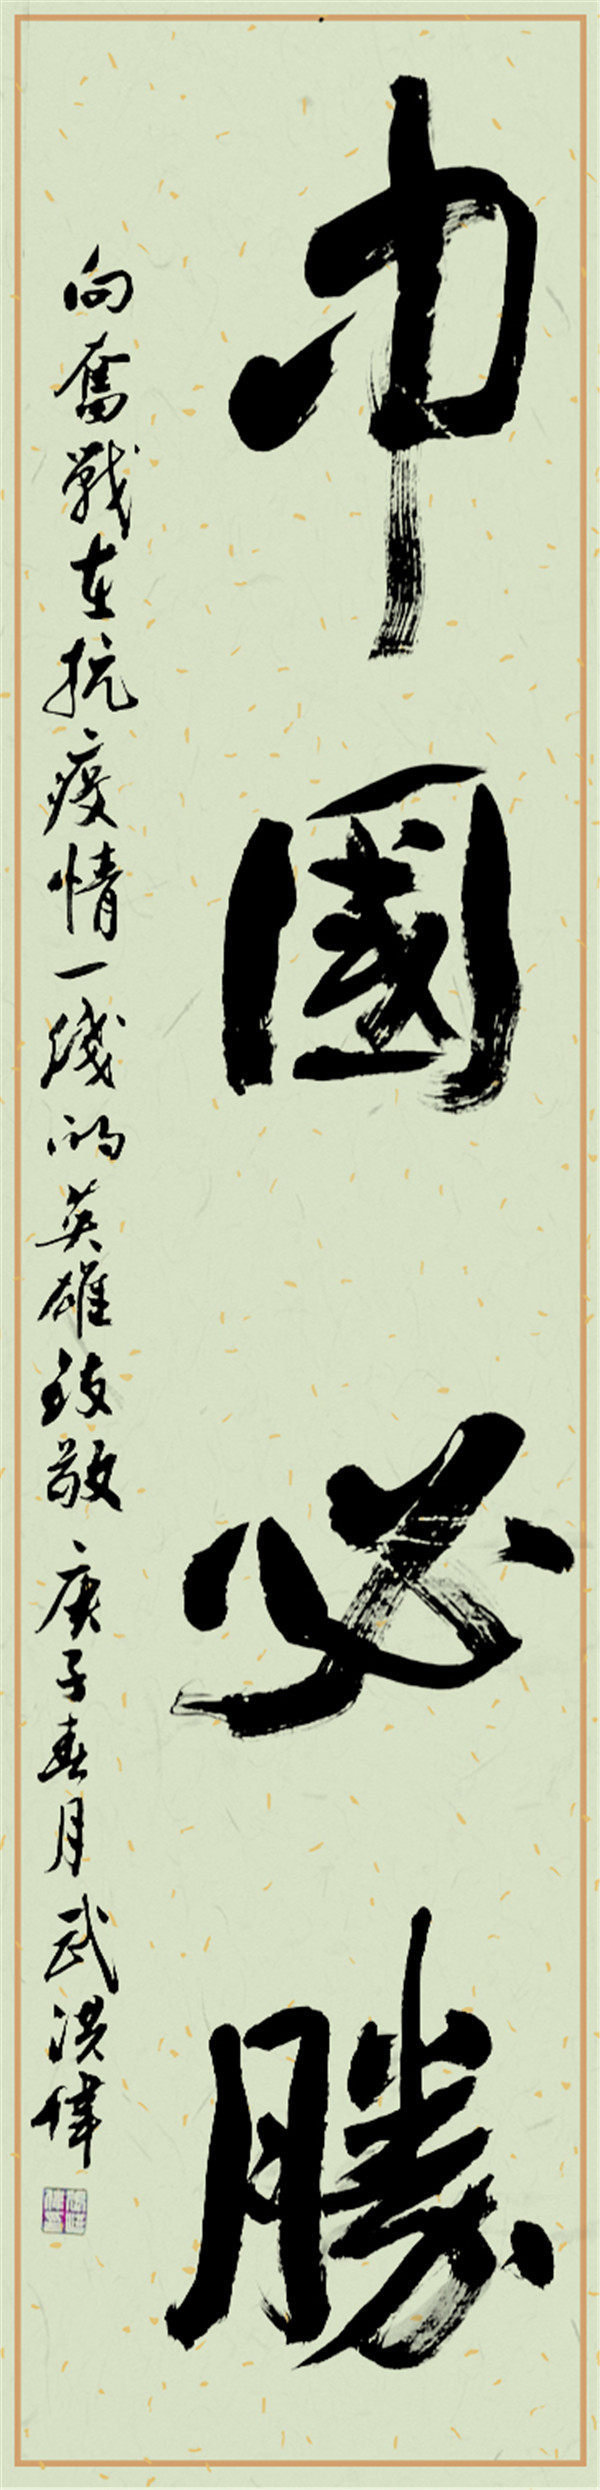 中國必勝
向奮戰在抗疫情一线的英雄致敬 庚子春月 武洪偉